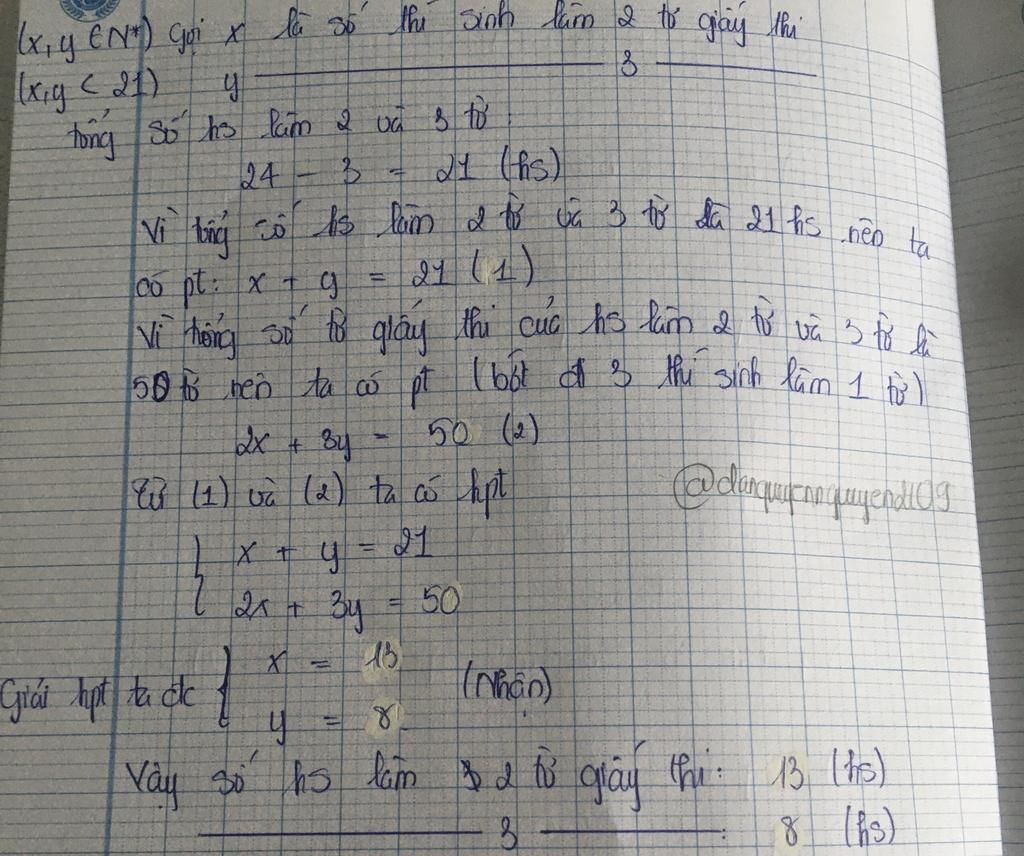 (x, y ∈ N*) gọi x là số thí sinh làm 2 tờ giấy thi
(x, y < 21) y ——— 3 ———
tổng số hs làm 2 và 3 tờ:
24 - 3 = 21 (hs)
Vì tổng số hs làm 2 tờ và 3 tờ là 21 hs nên ta
có pt: x + y = 21 (1)
Vì tổng số tờ giấy thi của hs làm 2 tờ và 3 tờ là
50 tờ nên ta có pt (bớt đi 3 thí sinh làm 1 tờ)
2x + 3y = 50 (2)
Từ (1) và (2) ta có hpt
@danquyennguyend109
{ x + y = 21
2x + 3y = 50
Giải hpt ta đc { x = 13
y = 8 (Nhận)
Vậy số hs làm 2 tờ giấy thi: 13 (hs)
——— 3 ———: 8 (hs)